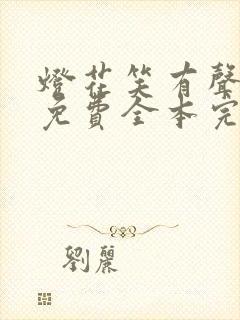 燈花笑有聲
免費全本完
劉麗